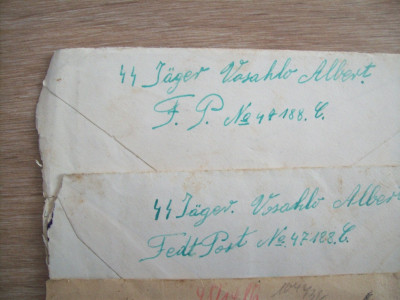 SS Jäger Vosahlo Albert.
F. P. No 47188. C.
SS Jäger. Vosahlo Alber
Fedt Post No. 47188. C.